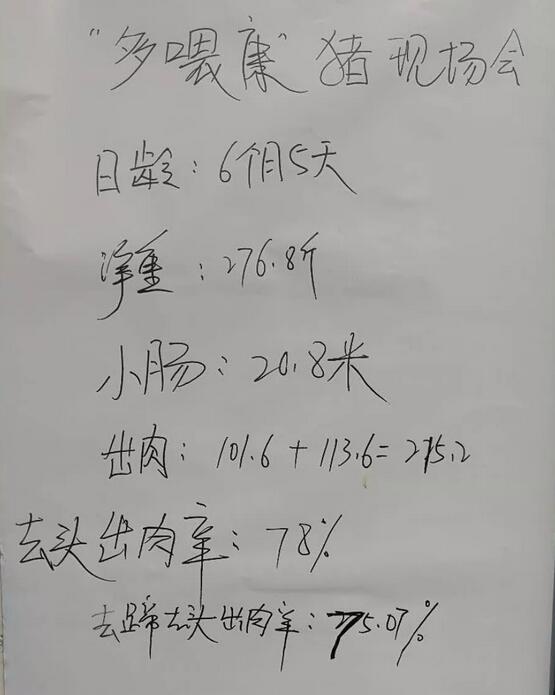 "多喂康"猪现场会
日龄：6个月5天
净重：276.8斤
小肠：20.8米
出肉：101.6+113.6=215.2
去头出肉率：78%
去蹄去头出肉率：75.07%